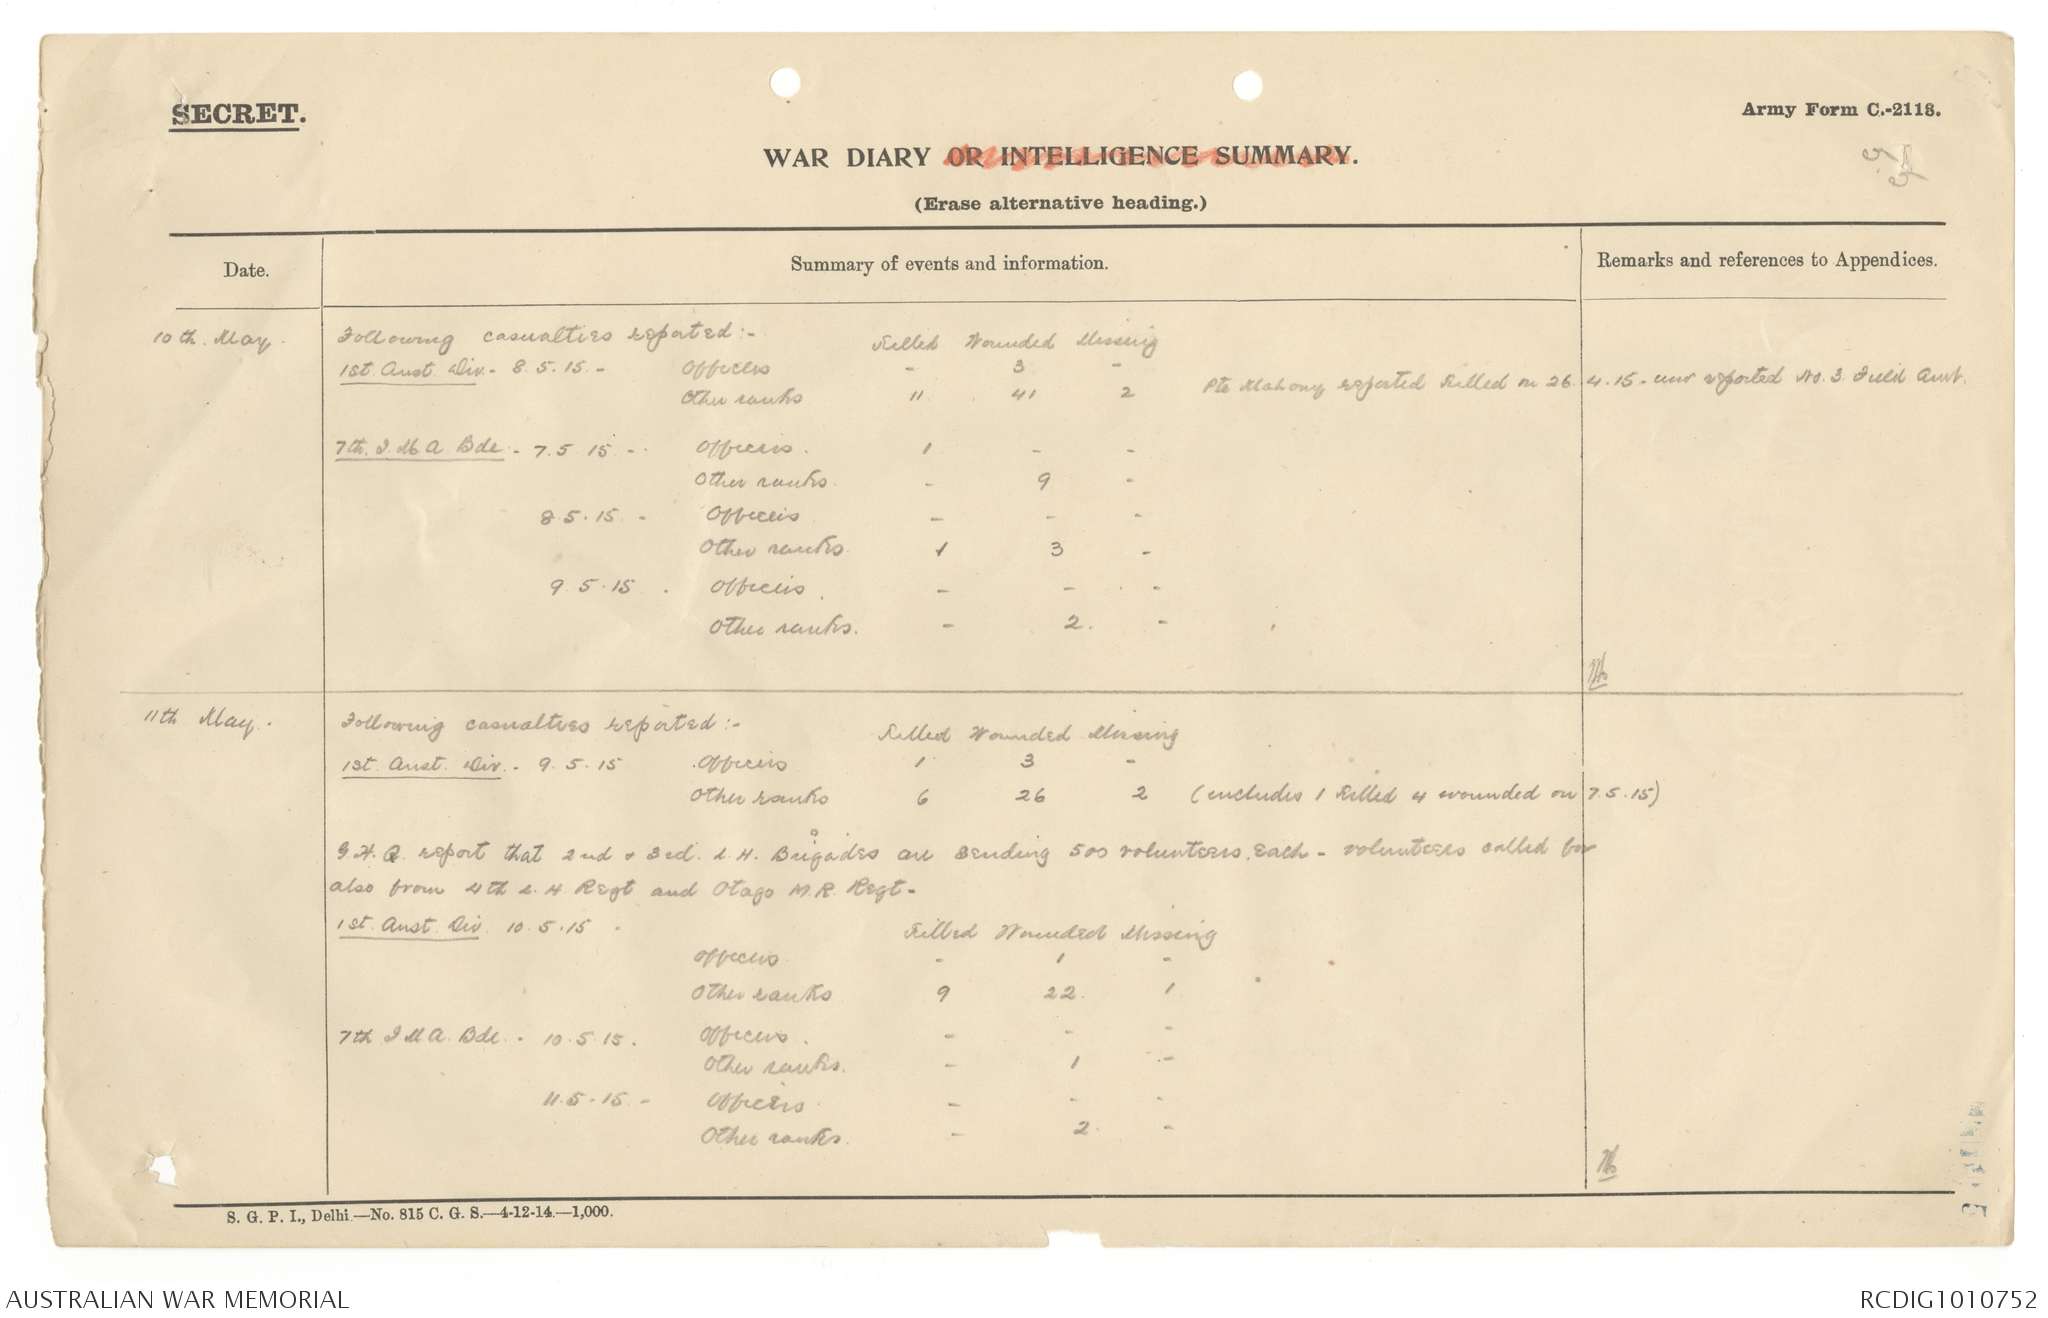 SECRET.
Army Form C.-2118.
WAR DIARY OR INTELLIGENCE SUMMARY.
(Erase alternative heading.)
Date.
Summary of events and information.
Remarks and references to Appendices.
10th May.
Following casualties reported :-
Killed Wounded Missing
1st Aust Div - 8.5.15. - Officers - 3 -
Other ranks 11 41 2 Pte Mahony reported killed on 26.4.15 - now reported No. 3. Field Amb.
7th. I. M. A. Bde - 7.5.15 - Officers. 1 - -
Other ranks. - 9 -
8.5.15 - Officers - - -
Other ranks. 1 3 -
9.5.15 . Officers . - - -
Other ranks. - 2. -
11th May.
Following casualties reported :-
Killed Wounded Missing
1st Aust. Div. - 9.5.15 Officers 1 3 -
Other ranks 6 26 2 (includes 1 killed 4 wounded on 7.5.15)
G.H.Q. report that 2nd & 3rd. L.H. Brigades are sending 500 volunteers each - volunteers called for
also from 4th L.H Regt and Otago M.R. Regt -
1st Aust Div. 10.5.15 -
Killed Wounded Missing
Officers - 1 -
Other ranks 9 22. 1
7th I M A. Bde. - 10.5.15. Officers. - - -
Other ranks. - 1 -
11.5.15. - Officers - - -
Other ranks. - 2. -
S. G. P. I., Delhi.—No. 815 C. G. S.—4-12-14.—1,000.
AUSTRALIAN WAR MEMORIAL
RCDIG1010752